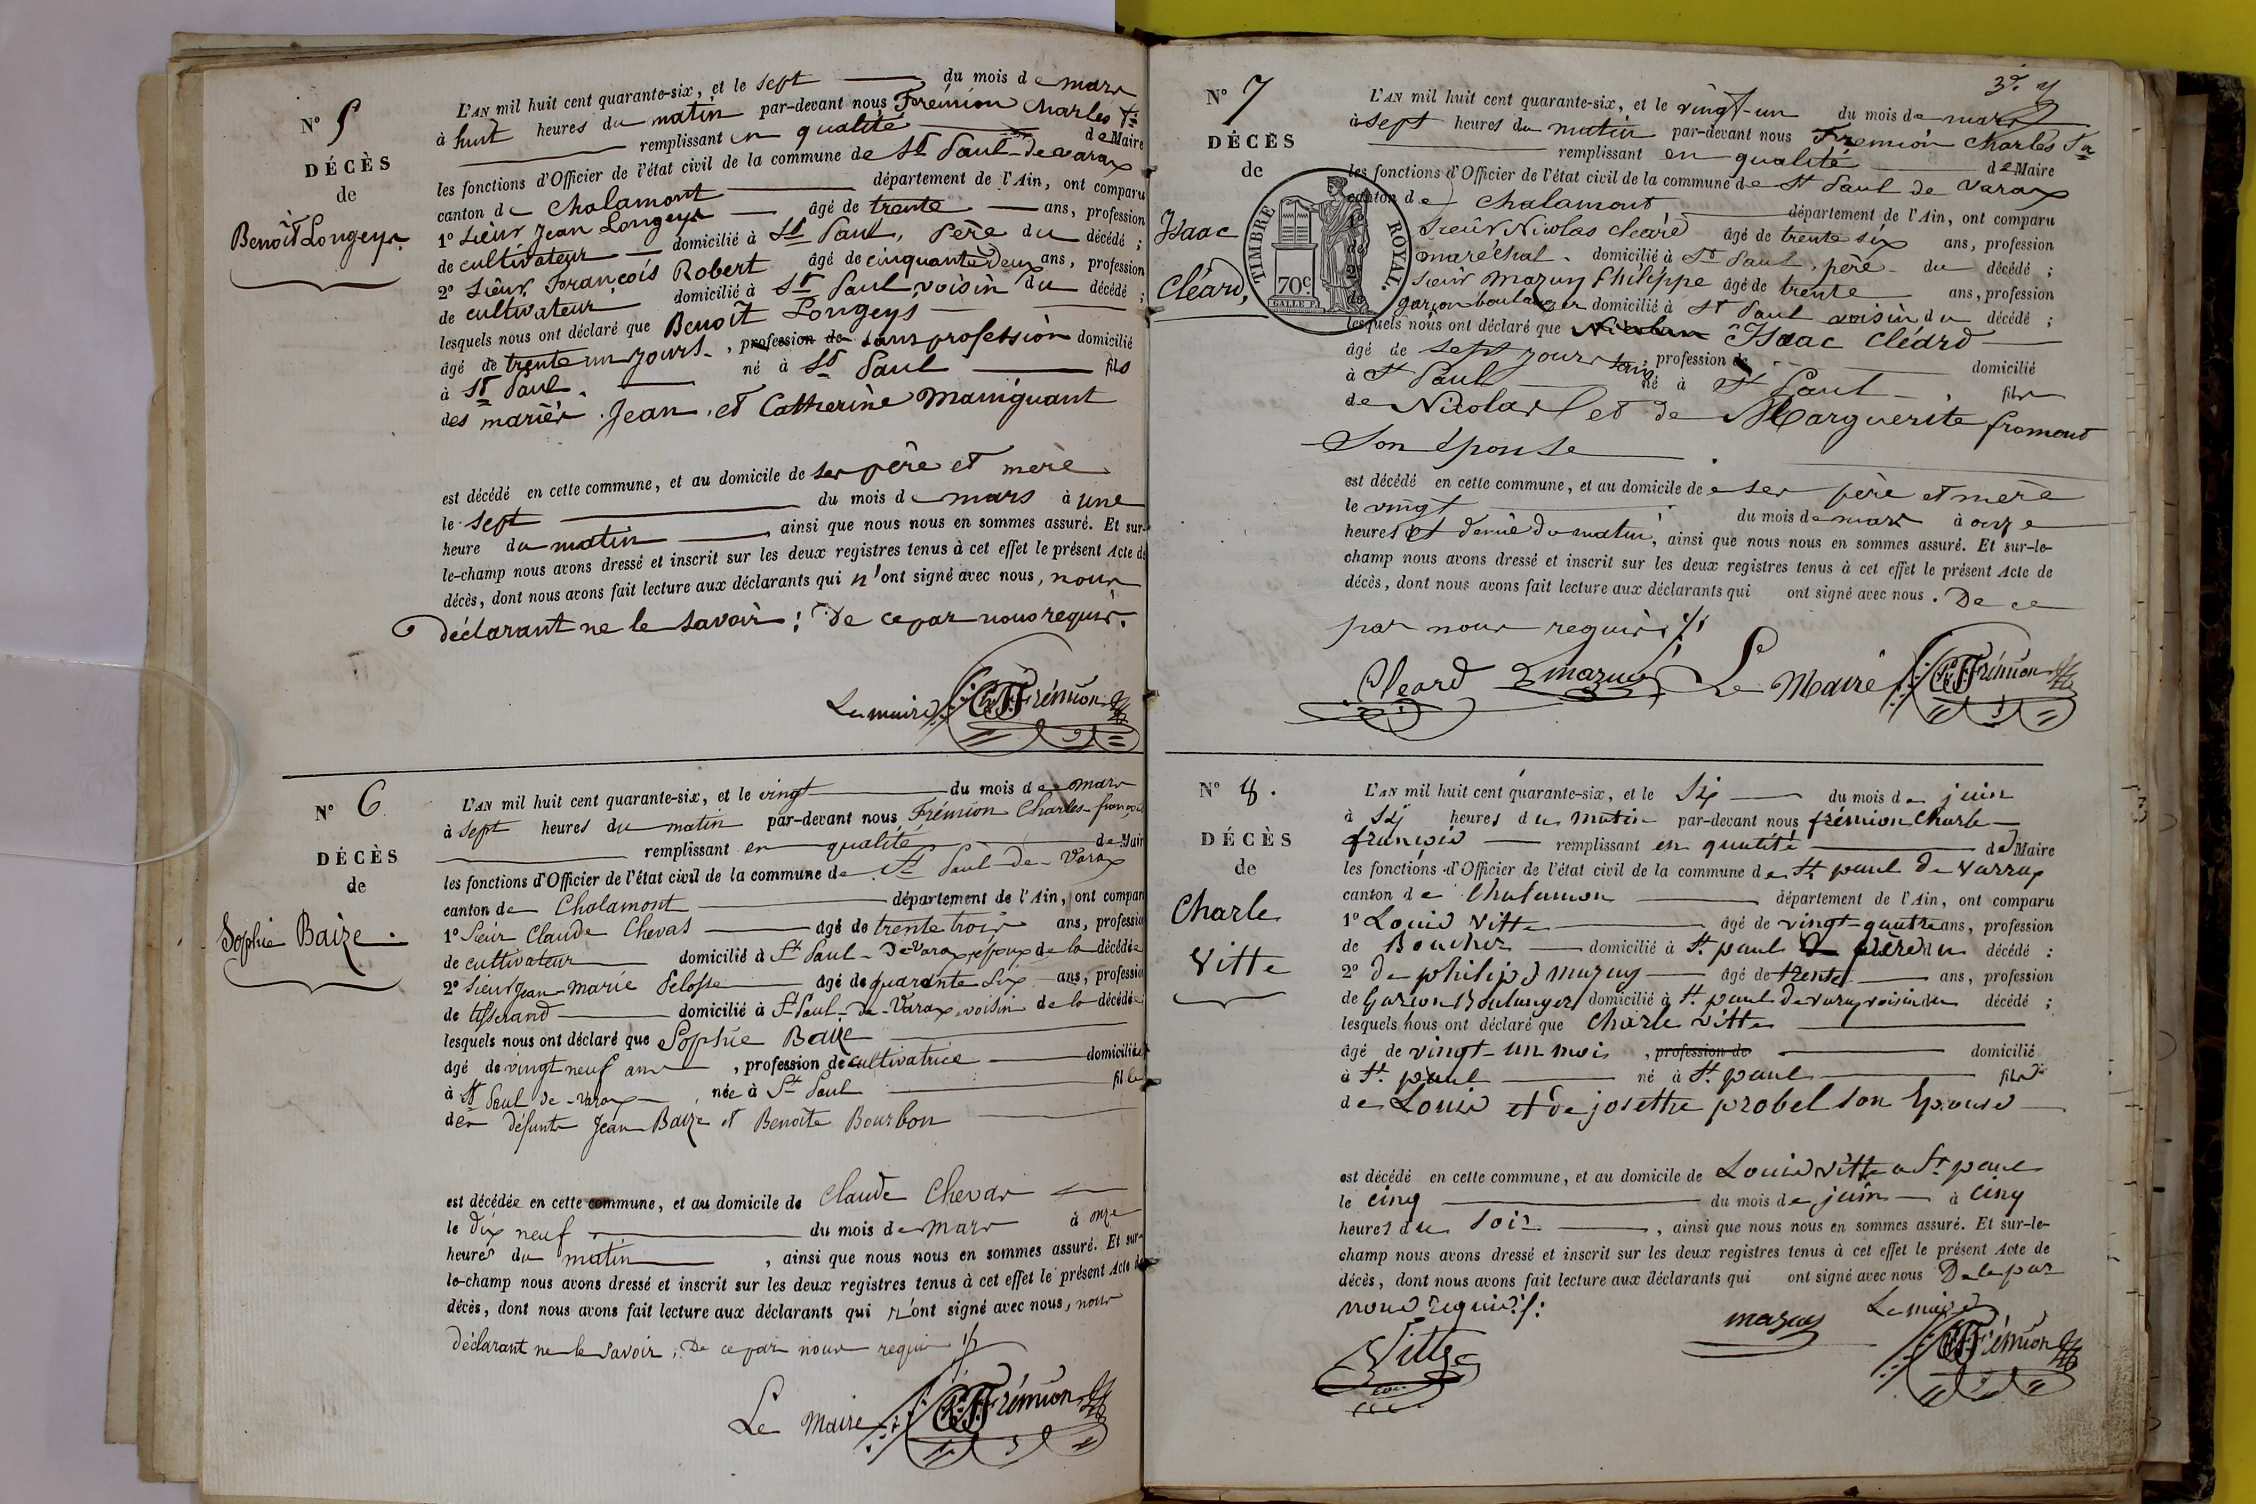 N° 5
DÉCÈS
de
Benoît Longeys
L'AN mil huit cent quarante-six, et le sept du mois de mars
à huit heures du matin par-devant nous Frémion Charles
remplissant en qualité de Maire
les fonctions d'Officier de l'état civil de la commune de St Paul-de varax
canton de Chalamont département de l'Ain, ont comparu
1° Sieur Jean Longeys âgé de trente ans, profession
de cultivateur domicilié à St Paul, père du décédé ;
2° Sieur François Robert âgé de cinquante deux ans, profession
de cultivateur domicilié à St Paul, voisin du décédé ;
lesquels nous ont déclaré que Benoît Longeys
âgé de trente un jours, profession de sans profession domicilié
à St Paul né à St Paul fils
des mariés Jean, et Catherine Mainguant
est décédé en cette commune, et au domicile de ses père et mère
le sept du mois de mars à une
heure du matin, ainsi que nous nous en sommes assuré. Et sur-
le-champ nous avons dressé et inscrit sur les deux registres tenus à cet effet le présent Acte de
décès, dont nous avons fait lecture aux déclarants qui n'ont signé avec nous, nous
déclarant ne le savoir ; De ce par nous requis.
Le maire Frémion
N° 6
DÉCÈS
de
Sophie Baize.
L'AN mil huit cent quarante-six, et le vingt du mois de mars
à sept heures du matin par-devant nous Frémion Charles-françois
remplissant en qualité de Maire
les fonctions d'Officier de l'état civil de la commune de St Paul-de-Varax
canton de Chalamont département de l'Ain, ont comparu
1° Sieur Claude Chevas âgé de trente trois ans, profession
de cultivateur domicilié à St Paul-de Varax, époux de la décédée
2° Sieur Jean-Marie Pelosse âgé de quarante six ans, profession
de tisserand domicilié à St Paul-de-Varax, voisin de la décédée
lesquels nous ont déclaré que Sophie Baize
âgé de vingt neuf ans, profession de cultivatrice domiciliée
à St Paul de-Varax née à St Paul fille
des défunts Jean Baize et Benoîte Bourbon
est décédée en cette commune, et au domicile de Claude Chevas
le dix neuf du mois de mars à onze
heures du matin, ainsi que nous nous en sommes assuré. Et sur-
le-champ nous avons dressé et inscrit sur les deux registres tenus à cet effet le présent Acte de
décès, dont nous avons fait lecture aux déclarants qui n'ont signé avec nous, nous
déclarant ne le savoir ; De ce par nous requis
Le Maire Frémion
N° 7
DÉCÈS
de
Isaac
Cléard,
TIMBRE ROYAL.
70c.
L'AN mil huit cent quarante-six, et le vingt-un du mois de mars
à sept heures du matin par-devant nous Fremion Charles
remplissant en qualité de Maire
les fonctions d'Officier de l'état civil de la commune de St Paul de Varax
canton de Chalamont département de l'Ain, ont comparu
Sieur Nicolas Cléard âgé de trente six ans, profession
maréchal. domicilié à St Paul, père du décédé ;
Sieur Mazuy Philippe âgé de trente ans, profession
garçon boulanger domicilié à St Paul voisin du décédé ;
lesquels nous ont déclaré que Nicolas Isaac Cléard
âgé de sept jours, profession de domicilié
à St Paul né à St Paul fils
de Nicolas et de Marguerite fromont
Son épouse
est décédé en cette commune, et au domicile de ses père et mère
le vingt du mois de mars à onze
heures et demie du matin, ainsi que nous nous en sommes assuré. Et sur-le-
champ nous avons dressé et inscrit sur les deux registres tenus à cet effet le présent Acte de
décès, dont nous avons fait lecture aux déclarants qui ont signé avec nous. De ce
par nous requis
Cleard Mazuy Le Maire Frémion
N° 8.
DÉCÈS
de
Charle
Vitte
L'AN mil huit cent quarante-six, et le six du mois de juin
à six heures du matin par-devant nous frémion Charle
françois remplissant en qualité de Maire
les fonctions d'Officier de l'état civil de la commune de St paul de varrax
canton de Chalamon département de l'Ain, ont comparu
1° Louis Vitte âgé de vingt-quatre ans, profession
de Boucher domicilié à St paul père du décédé ;
2° de philipe mazuy âgé de trente ans, profession
de Garson Boulanger domicilié à St paul de varax voisin du décédé ;
lesquels nous ont déclaré que Charle vitte
âgé de vingt-un mois, profession de domicilié
à St paul né à St paul fils
de Louis et de josette probel son épouse
est décédé en cette commune, et au domicile de Louis vitte a St paul
le cinq du mois de juin à cinq
heures du soir, ainsi que nous nous en sommes assuré. Et sur-le-
champ nous avons dressé et inscrit sur les deux registres tenus à cet effet le présent Acte de
décès, dont nous avons fait lecture aux déclarants qui ont signé avec nous De ce par
nous requis :
Vitte mazuy Le maire Frémion